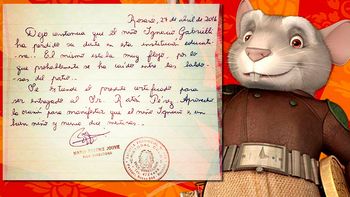 Rosario, 27 de abril de 2016
Dejo constancia que el niño Ignacio Gabrielli
ha perdido su diente en esta institución educati-
va.. El mismo estaba muy flojo, por lo
que probablemente se ha caído entre las baldo-
sas del patio..
Se extiende el presente certificado para
ser entregado al Sr. Ratón Pérez. Aprovecho
la ocasión para manifestar que el niño Ignacio es un
buen niño y merece dos metros..